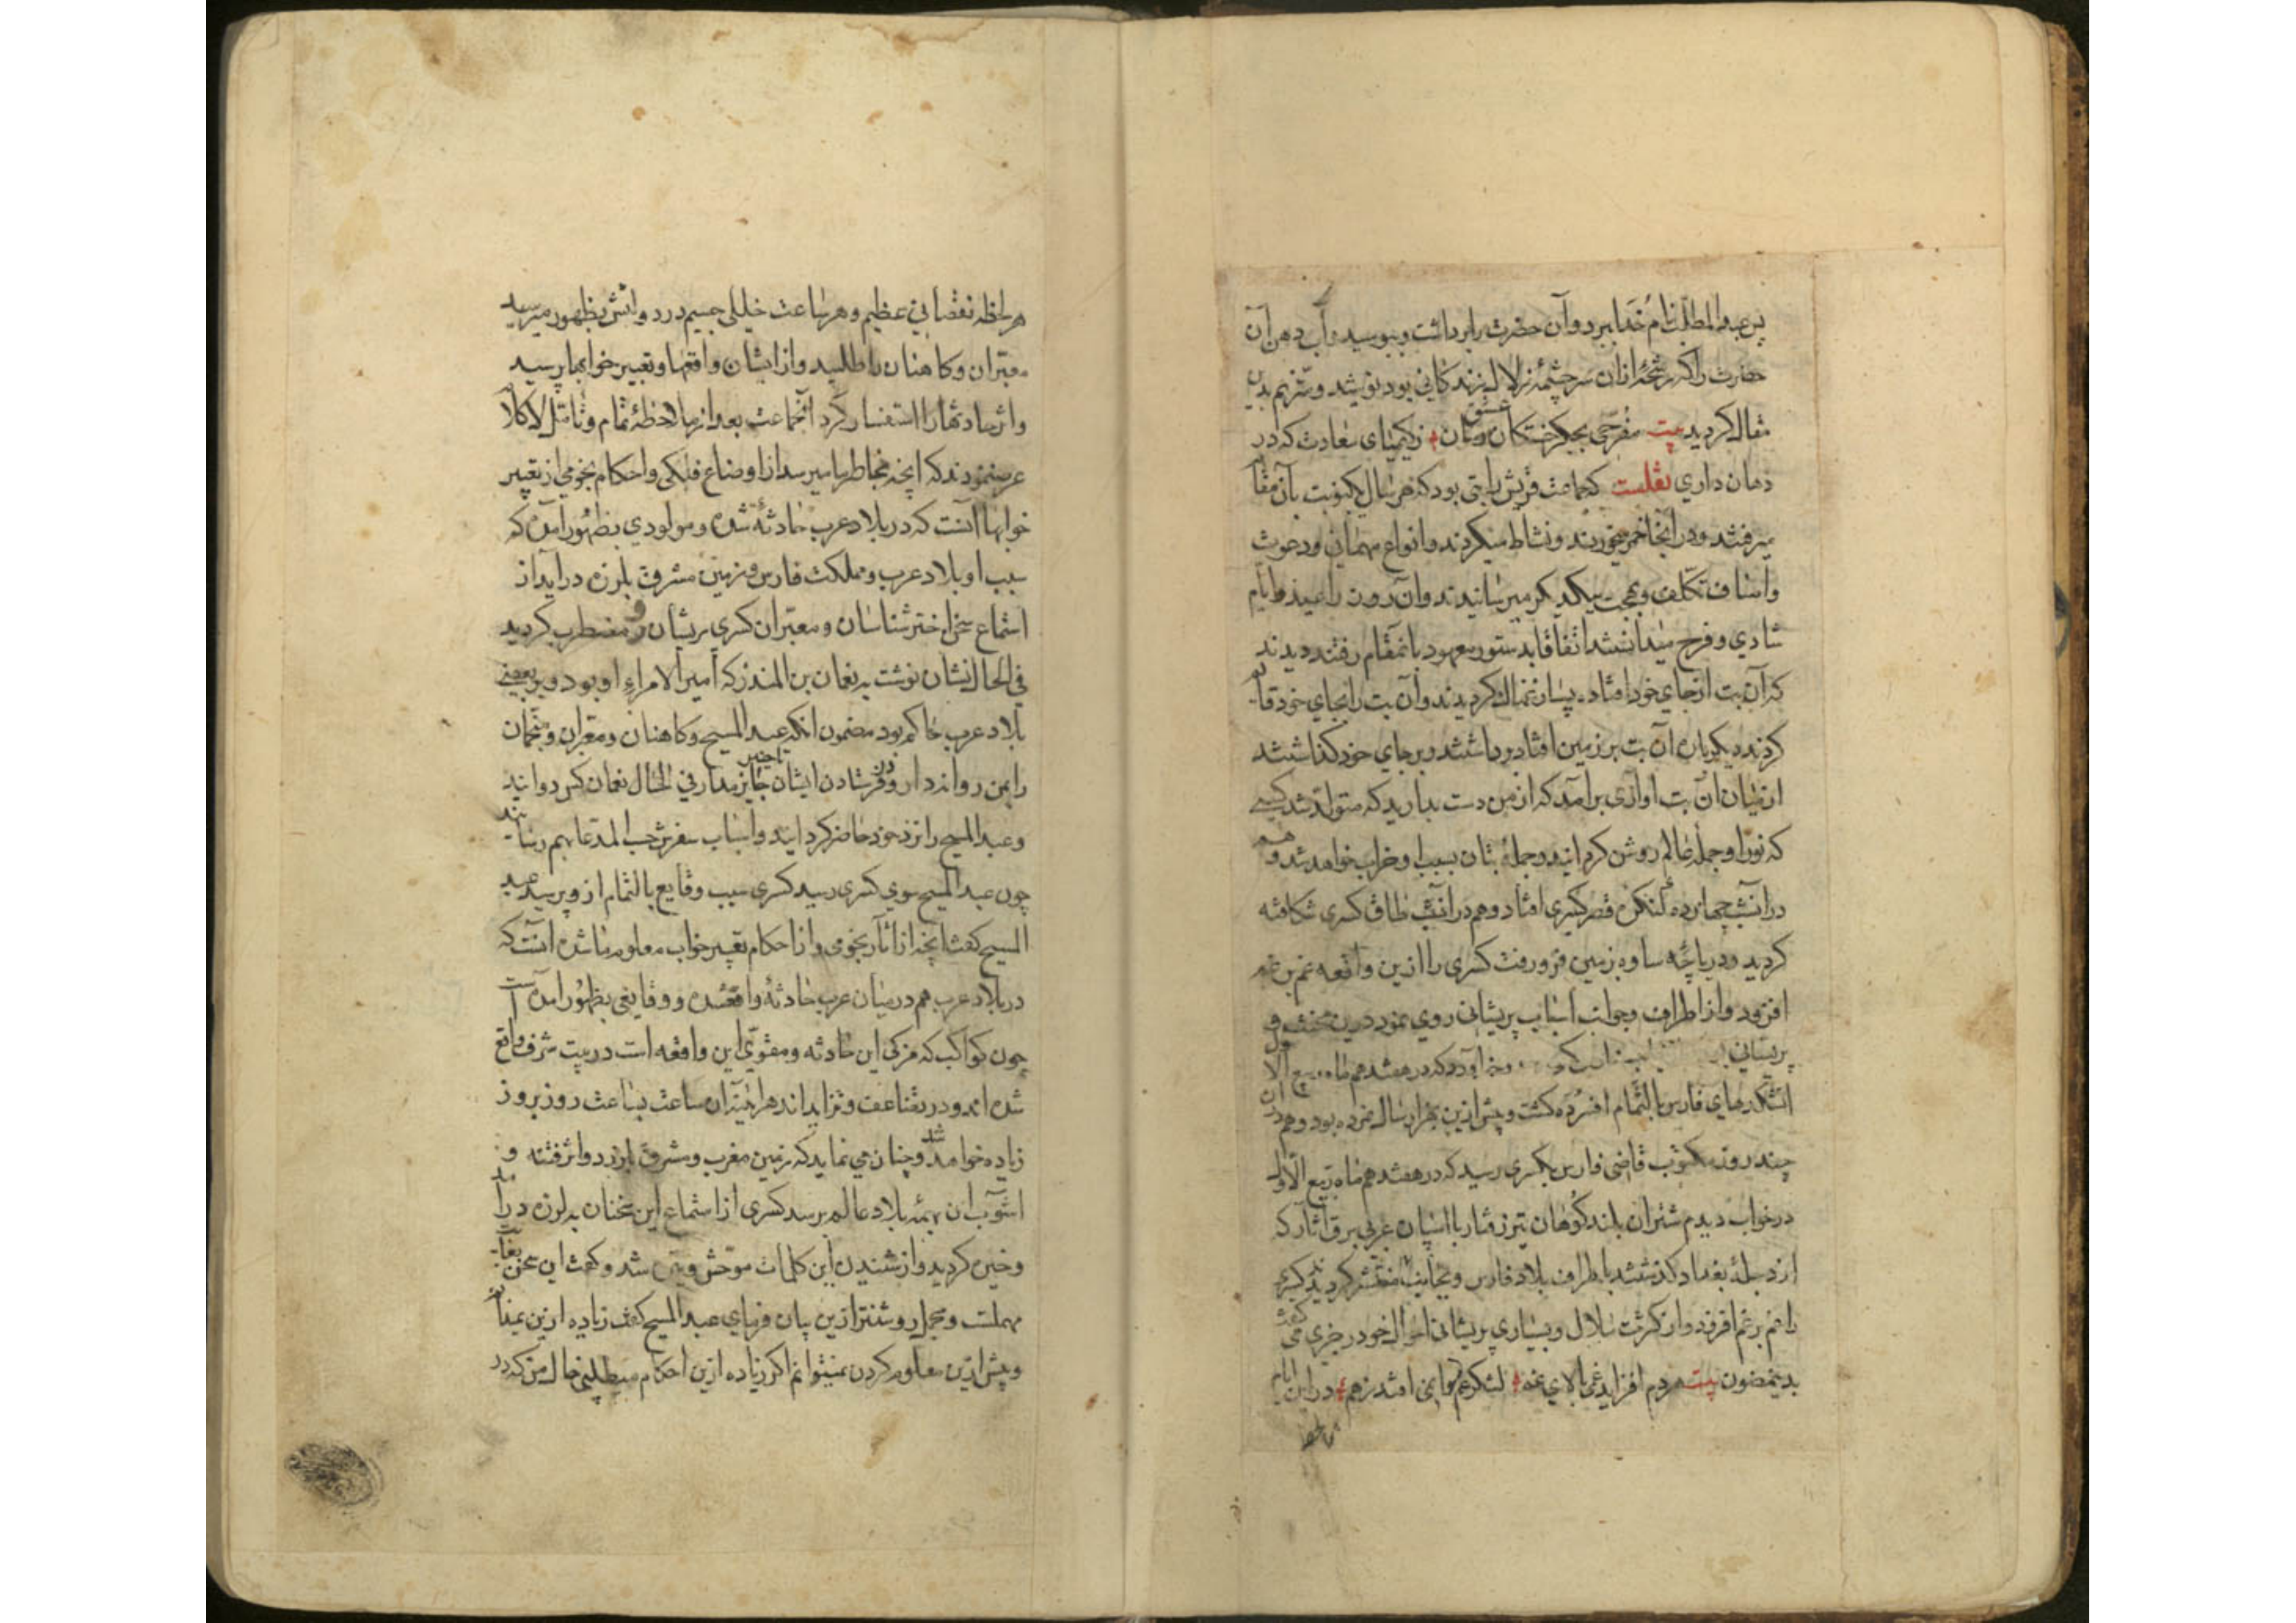 پس عبدالمطلب نام خدا ببرد و آن حضرت را برداشت و ببوسید و آب دهن آن
حضرت را که رشحهٔ ازان سرچشمهٔ زلال زندکانی بود نوشید و مترنم بدین
مقال کردید بیت مفرحی بجکر خستکان عشق رسان زکیمیای سعادت که در
دهان داری نقلست که جماعت قریش را بتی بود که هر سال یکنوبت بآن مقام
میرفتند و در آنجا خمر میخوردند و نشاط میکردند و انواع مهمانی و دعوت
و اصناف تکلف و بهجت بیکدیکر میرسانیدند و آن روز را عید و ایام
شادی و فرح میدانستند اتفاقا بدستور معهود بانمقام رفتند دیدند
که آن بت از جای خود افتاده پسازنمال کردیدند و آن بت را بجای خود قایم
کردند دیکر باره آن بت بر زمین افتاد برداشتند و بر جای خود کذاشتند
از میان آن بت آوازی برآمد که از من دست بدارید که متولد شد کسی
که نور او جمله عالم روشن کرداند و جملهٔ بتان بسبب او خراب خواهد شد و هم
در آنشب چهارده کنکره قصر کسری افتاد و هم در آنشب طاق کسری شکافته
کردید و دریاچه ساوه بزمین فرو رفت کسری را ازین واقعه غم بر غم
افزود و از اطراف و جوانب اسباب پریشانی روی نمود درین
پریشانی که در هفتدهم ماه ربیع الاول
آتشکدهای فارس بالتمام افسرده کشت و پیش ازین بهزار سال نمرده بود و هم دران
چند روز مکتوب قاضی فارس بکسری رسید که در هفتدهم ماه ربیع الاول
در خواب دیدم شتران بلند کوهان تیز رفتار با اسپان عربی برق آثار که
از دجلهٔ بغداد کذشتند باطراف بلاد فارس و بجانب منتشر کردیدند کسری
را غم بر غم افزود و از کثرت ملال و بسیاری پریشانی احوال خود در جزی می کفت
بدینمضون بیت هردم افزاید غمی بالای غم لشکر غم در این ایام
هر لحظه
هر لحظه نقصانی عظیم و هر ساعت خیللی جسیم در دولتش بظهور میرسید
معبران و کاهنان را طلبید و از ایشان واقعها و تعبیر خوابها پرسید
و اثر حادثها را استفسار کرد آنجماعت بعد از ملاحظهٔ تمام و تامل لا کلام
عرضنمودند که آنچه بخاطر ما میرسد از اوضاع فلکی و احکام نجومی از تعبیر
خوابها آنست که در بلاد عرب حادثهٔ شده و مولودی بظهور آمده که
بسبب او بلاد عرب و مملکت فارس و زمین مشرق بلرزه در آید از
استماع سخن اخترشناسان و معبران کسری پریشان و مضطرب کردید
فی الحال نشان نوشت به نعمان بن المنذر که امیر الامراء او بود و بر بعضی
بلاد عرب حاکم بود مضمون انکه عبد المسیح و کاهنان و معبران و منجمان
را بمن روانه دار و در فرستادن ایشان تاخیر جایز مدار فی الحال نعمان کس دوانید
و عبد المسیح را نزد خود حاضر کردانید و اسباب سفرش حسب المدعا بهم رسانید
چون عبد المسیح سوی کسری رسید کسری سبب وقایع بالتمام ازو پرسید عبد
المسیح کفت آنچه از آثار نجومی و از احکام تعبیر خواب معلوم ما شده آنست که
در بلاد عرب هم در میان عرب حادثهٔ واقعشده و وقایعی بظهور آمده است
چون کواکب که مزکی این حادثه و مقوی این واقعه است در بیت شرف واقع
شده اند و در تضاعف و تزاید اند هر آینه آن ساعت بساعت روز بروز
زیاده خواهد شد و چنان می نماید که زمین مغرب و مشرق بلرزد و اثر فتنه و
آشوب آن بهمه بلاد عالم برسد کسری از استماع این سخنان به لرزه در آمد
و خیره کردید و از شنیدن این کلمات متوحش شد و کفت این سخن بغایت
مهملست و مجمل روشنتر ازین بیان فرمای عبد المسیح کفت زیاده ازین نمیدانم
و پیش ازین معلوم کردن نمیتوانم اکر زیاده ازین احکام میطلبی خال من که در